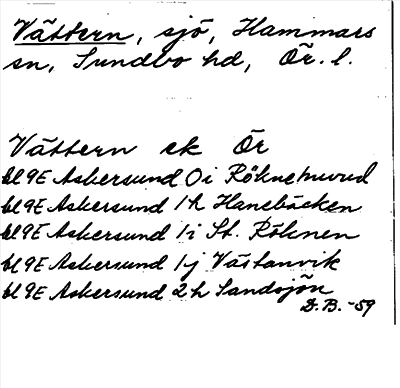 Vättern, sjö, Hammars
sn, Sundbo hd, Ör. l.
Vättern ek Ör
bl 9E Askersund 0 i Röknehuvud
bl 9E Askersund 1 h Hanebäcken
bl 9E Askersund 1 i St. Röknen
bl 9E Askersund 1 j Västanvik
bl 9E Askersund 2 h Sandsjön
D.B. -59